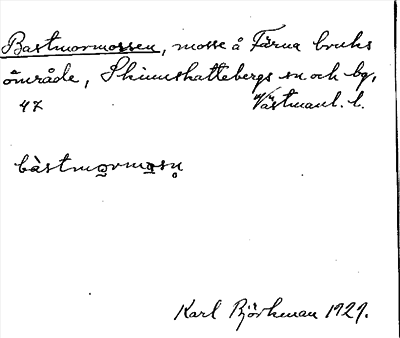 Bastmormossen, mosse å Färna bruks
område, Skinnskattebergs sn och bg,
47 Västmanl. l.
bàstmo̲rmo̲sn̥
Karl Björkman 1929.